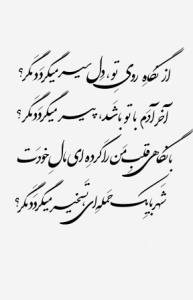 از نگاهِ روی تو، دل سیر میگردد مگر؟
آخر آدم با تو باشد، پیر میگردد مگر؟
با نگاهی قلب من را کرده ای مال خودت
شهر با یک حمله ای تسخیر میگردد مگر؟